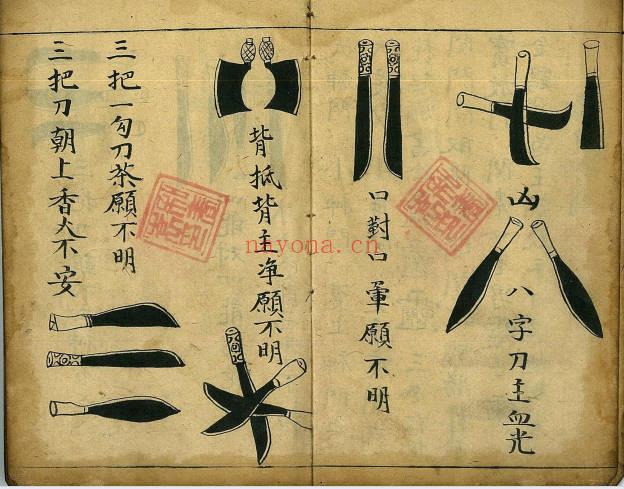 凶
八字刀主血光
口對口葷願不明
背抵背主净願不明
三把一勾刀茶願不明
三把刀朝上香火不安
nayona.cn